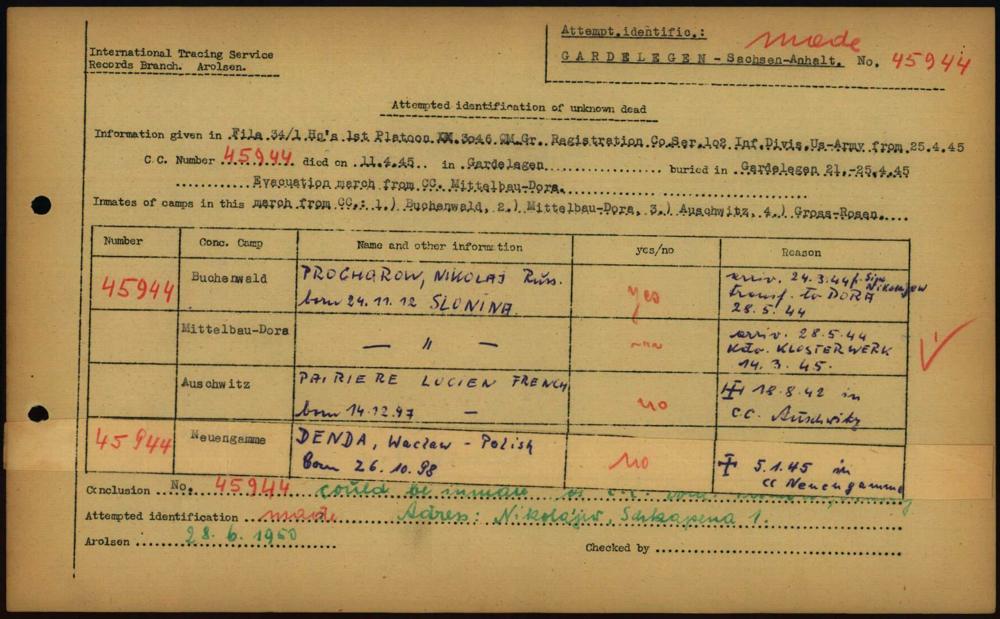 International Tracing Service
Records Branch. Arolsen.
Attempt.identific.: made
GARDELEGEN - Sachsen-Anhalt. No. 45944
Attempted identification of unknown dead
Information given in File 34/1 Hq's 1st Platoon XX.3046 QM.Gr. Registration Co.Ser.102 Inf.Divis.Us-Army from 25.4.45
C.C. Number 45944 died on 11.4.45 in Gardelegen buried in Gardelegen 21.-25.4.45
Evacuation march from CC. Mittelbau-Dora.
Inmates of camps in this march from CC.: 1.) Buchenwald, 2.) Mittelbau-Dora, 3.) Auschwitz, 4.) Gross-Rosen.
Number Conc. Camp Name and other information yes/no Reason
45944 Buchenwald PROCHOROW, NIKOLAJ Russ. born 24.11.12 SLONINA. yes arriv. 24.3.44 f. Sipo Nikolajew transf. to DORA 28.5.44
Mittelbau-Dora — " — —"— arriv. 28.5.44 Kdo. KLOSTERWERK 14.3.45.
Auschwitz PAIRIERE LUCIEN FRENCH born 14.12.97 — no 18.8.42 in CC. Auschwitz
45944 Neuengamme DENDA, Wacław - Polish born 26.10.98 no 5.1.45 in CC Neuengamme
Conclusion No. 45944 could be inmate of C.C.
Attempted identification made. Adress: Nikolajew,
Arolsen 28.6.1950 Checked by